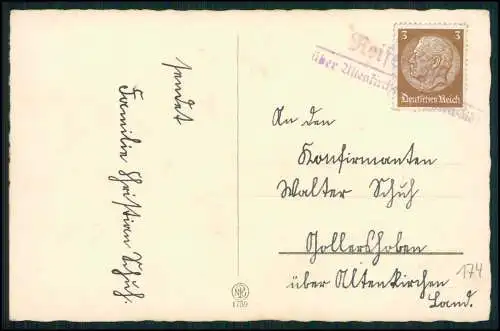 sendet
Familie Christian Schuh.
3 3
Deutsches Reich
Reife
über Altenkirchen
An den
Konfirmanten
Walter Schuh
über Altenkirchen
Land.
174
1759